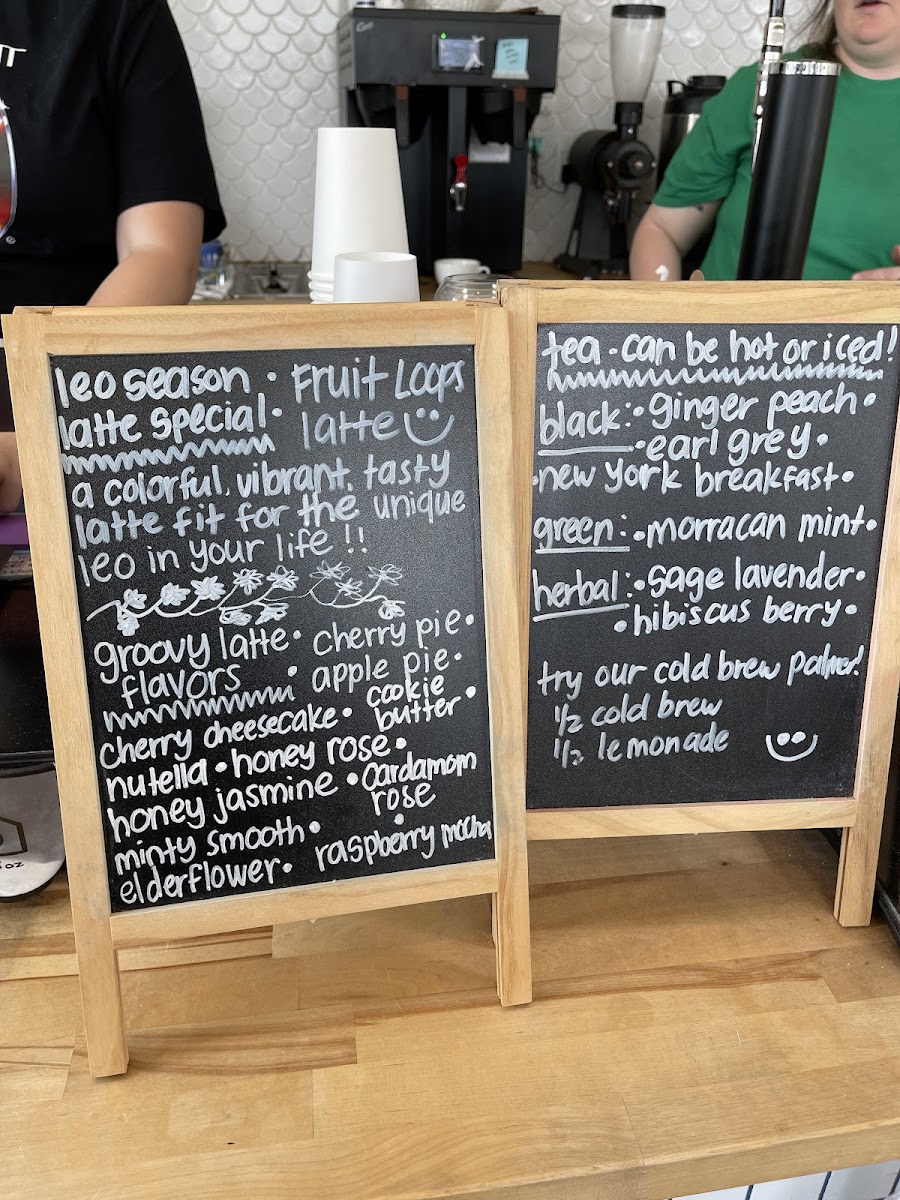 leo season • Fruit Loops
latte special • latte
a colorful, vibrant, tasty
latte fit for the unique
leo in your life !!
groovy latte • cherry pie •
flavors • apple pie •
cherry cheesecake • cookie butter •
nutella • honey rose •
honey jasmine • cardamom rose
minty smooth •
elderflower • raspberry mocha
tea • can be hot or iced!
black: • ginger peach •
• earl grey •
• new york breakfast •
green: • morracan mint •
herbal: • sage lavender •
• hibiscus berry •
try our cold brew palmer!
1/2 cold brew
1/2 lemonade
oz